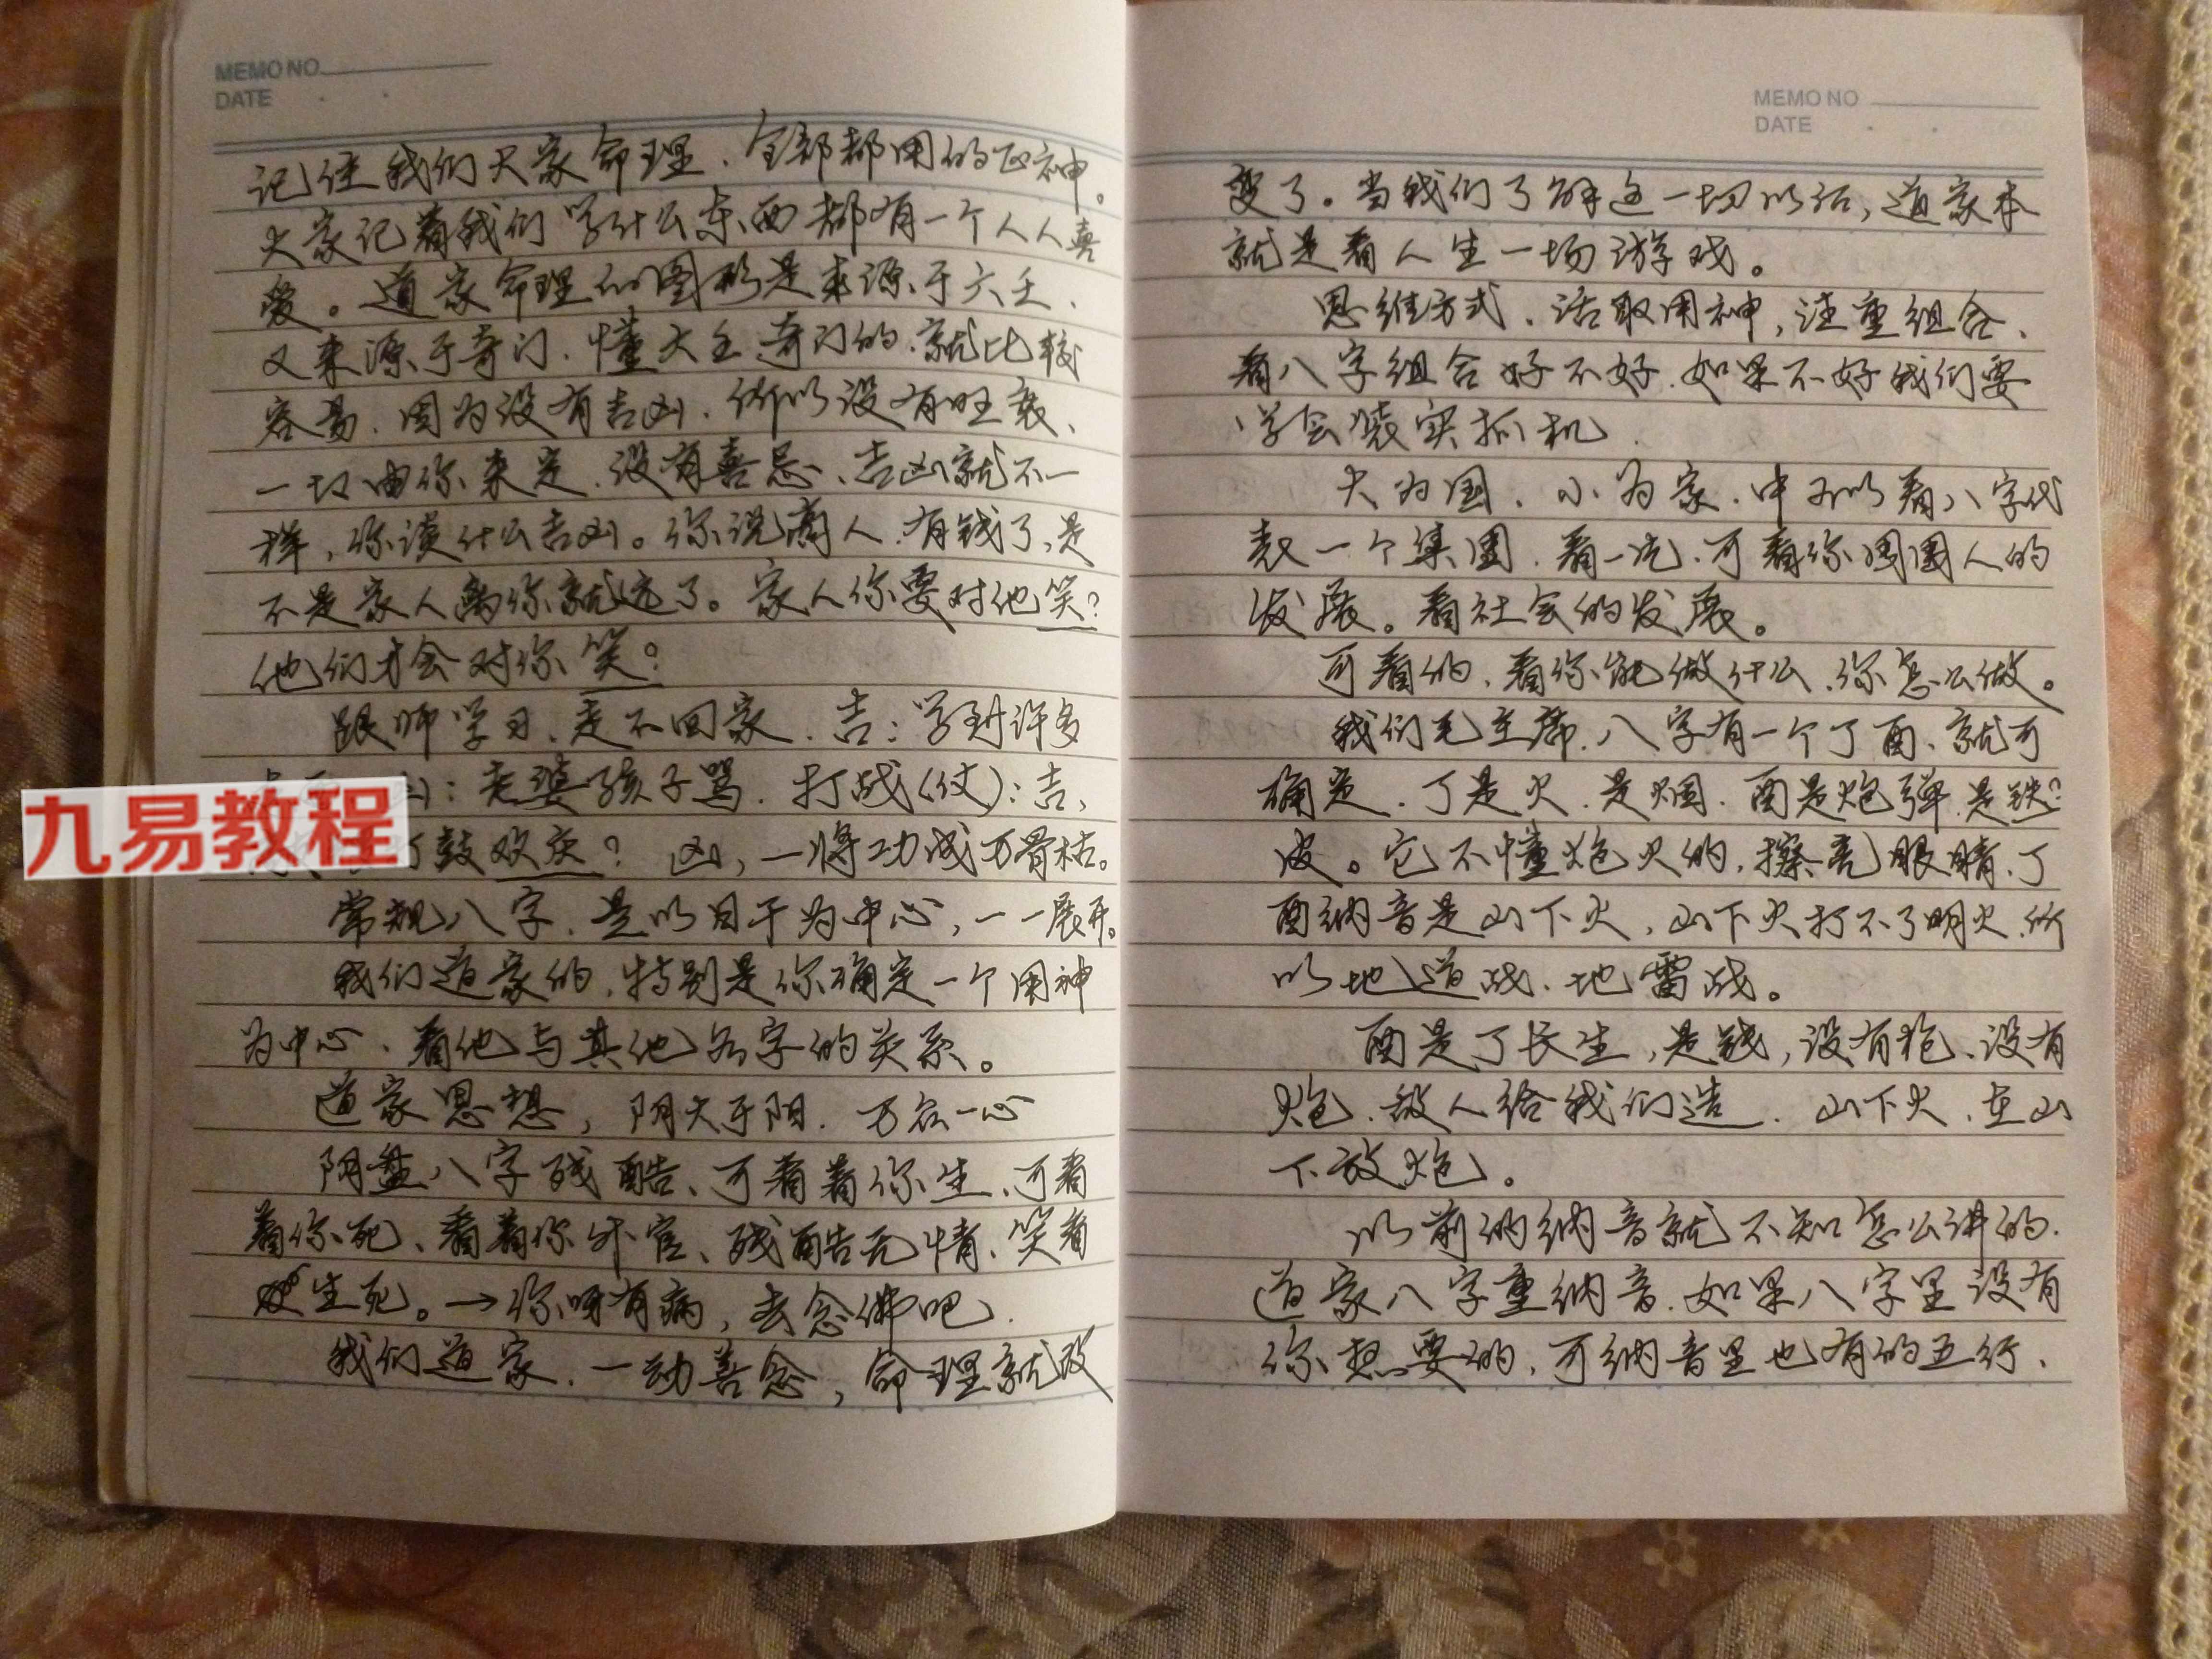 MEMO NO
DATE
记住我们大家命理、全部都用的正神。
大家记着我们学什么东西都有一个人人喜
爱。道家命理的图形是来源于六壬、
又来源于奇门、懂大壬奇门的、就比较
容易、因为没有吉凶、所以没有旺衰、
一切由你来定、没有喜忌、吉凶就不一
样，你谈什么吉凶。你说商人、有钱了，是
不是家人离你就远了。家人你要对他笑？
他们才会对你笑？
跟师学习、走不回家、吉：学到许多
：老婆孩子骂、打战(仗)：吉、
九易教程
鼓欢庆？凶，一将功成万骨枯。
常规八字、是以日干为中心，一一展开。
我们道家的、特别是你确定一个用神
为中心、看他与其他各字的关系。
道家思想，阴大于阳、万众一心
阴盘八字残酷、可看着你生、可看
着你死、看着你升官、残酷无情、笑看
生死。→你呀有病，去念佛吧、
我们道家、一动善念，命理就改
MEMO NO
DATE
变了。当我们了解这一切以后，道家本
就是看人生一场游戏。
思维方式、活取用神，注重组合、
看八字组合好不好、如果不好我们要
学会装实抓机、
大为国、小为家、中可以看八字代
表一个集团、看一沈、可看你周围人的
发展。看社会的发展。
可看的、看你能做什么、你怎么做。
我们毛主席、八字有一个丁酉、就可
确定、丁是火、是烟、酉是炮弹、是铁？
皮。它不懂炮火的，擦亮眼睛、丁
酉纳音是山下火，山下火打不了明火、所
以地道战、地雷战。
酉是丁长生，是钱，没有枪、没有
炮、敌人给我们造、山下火、在山
下放炮。
以前的纳音就不知怎么讲的、
道家八字重纳音、如果八字里没有
你想要的，可纳音里也有的五行、